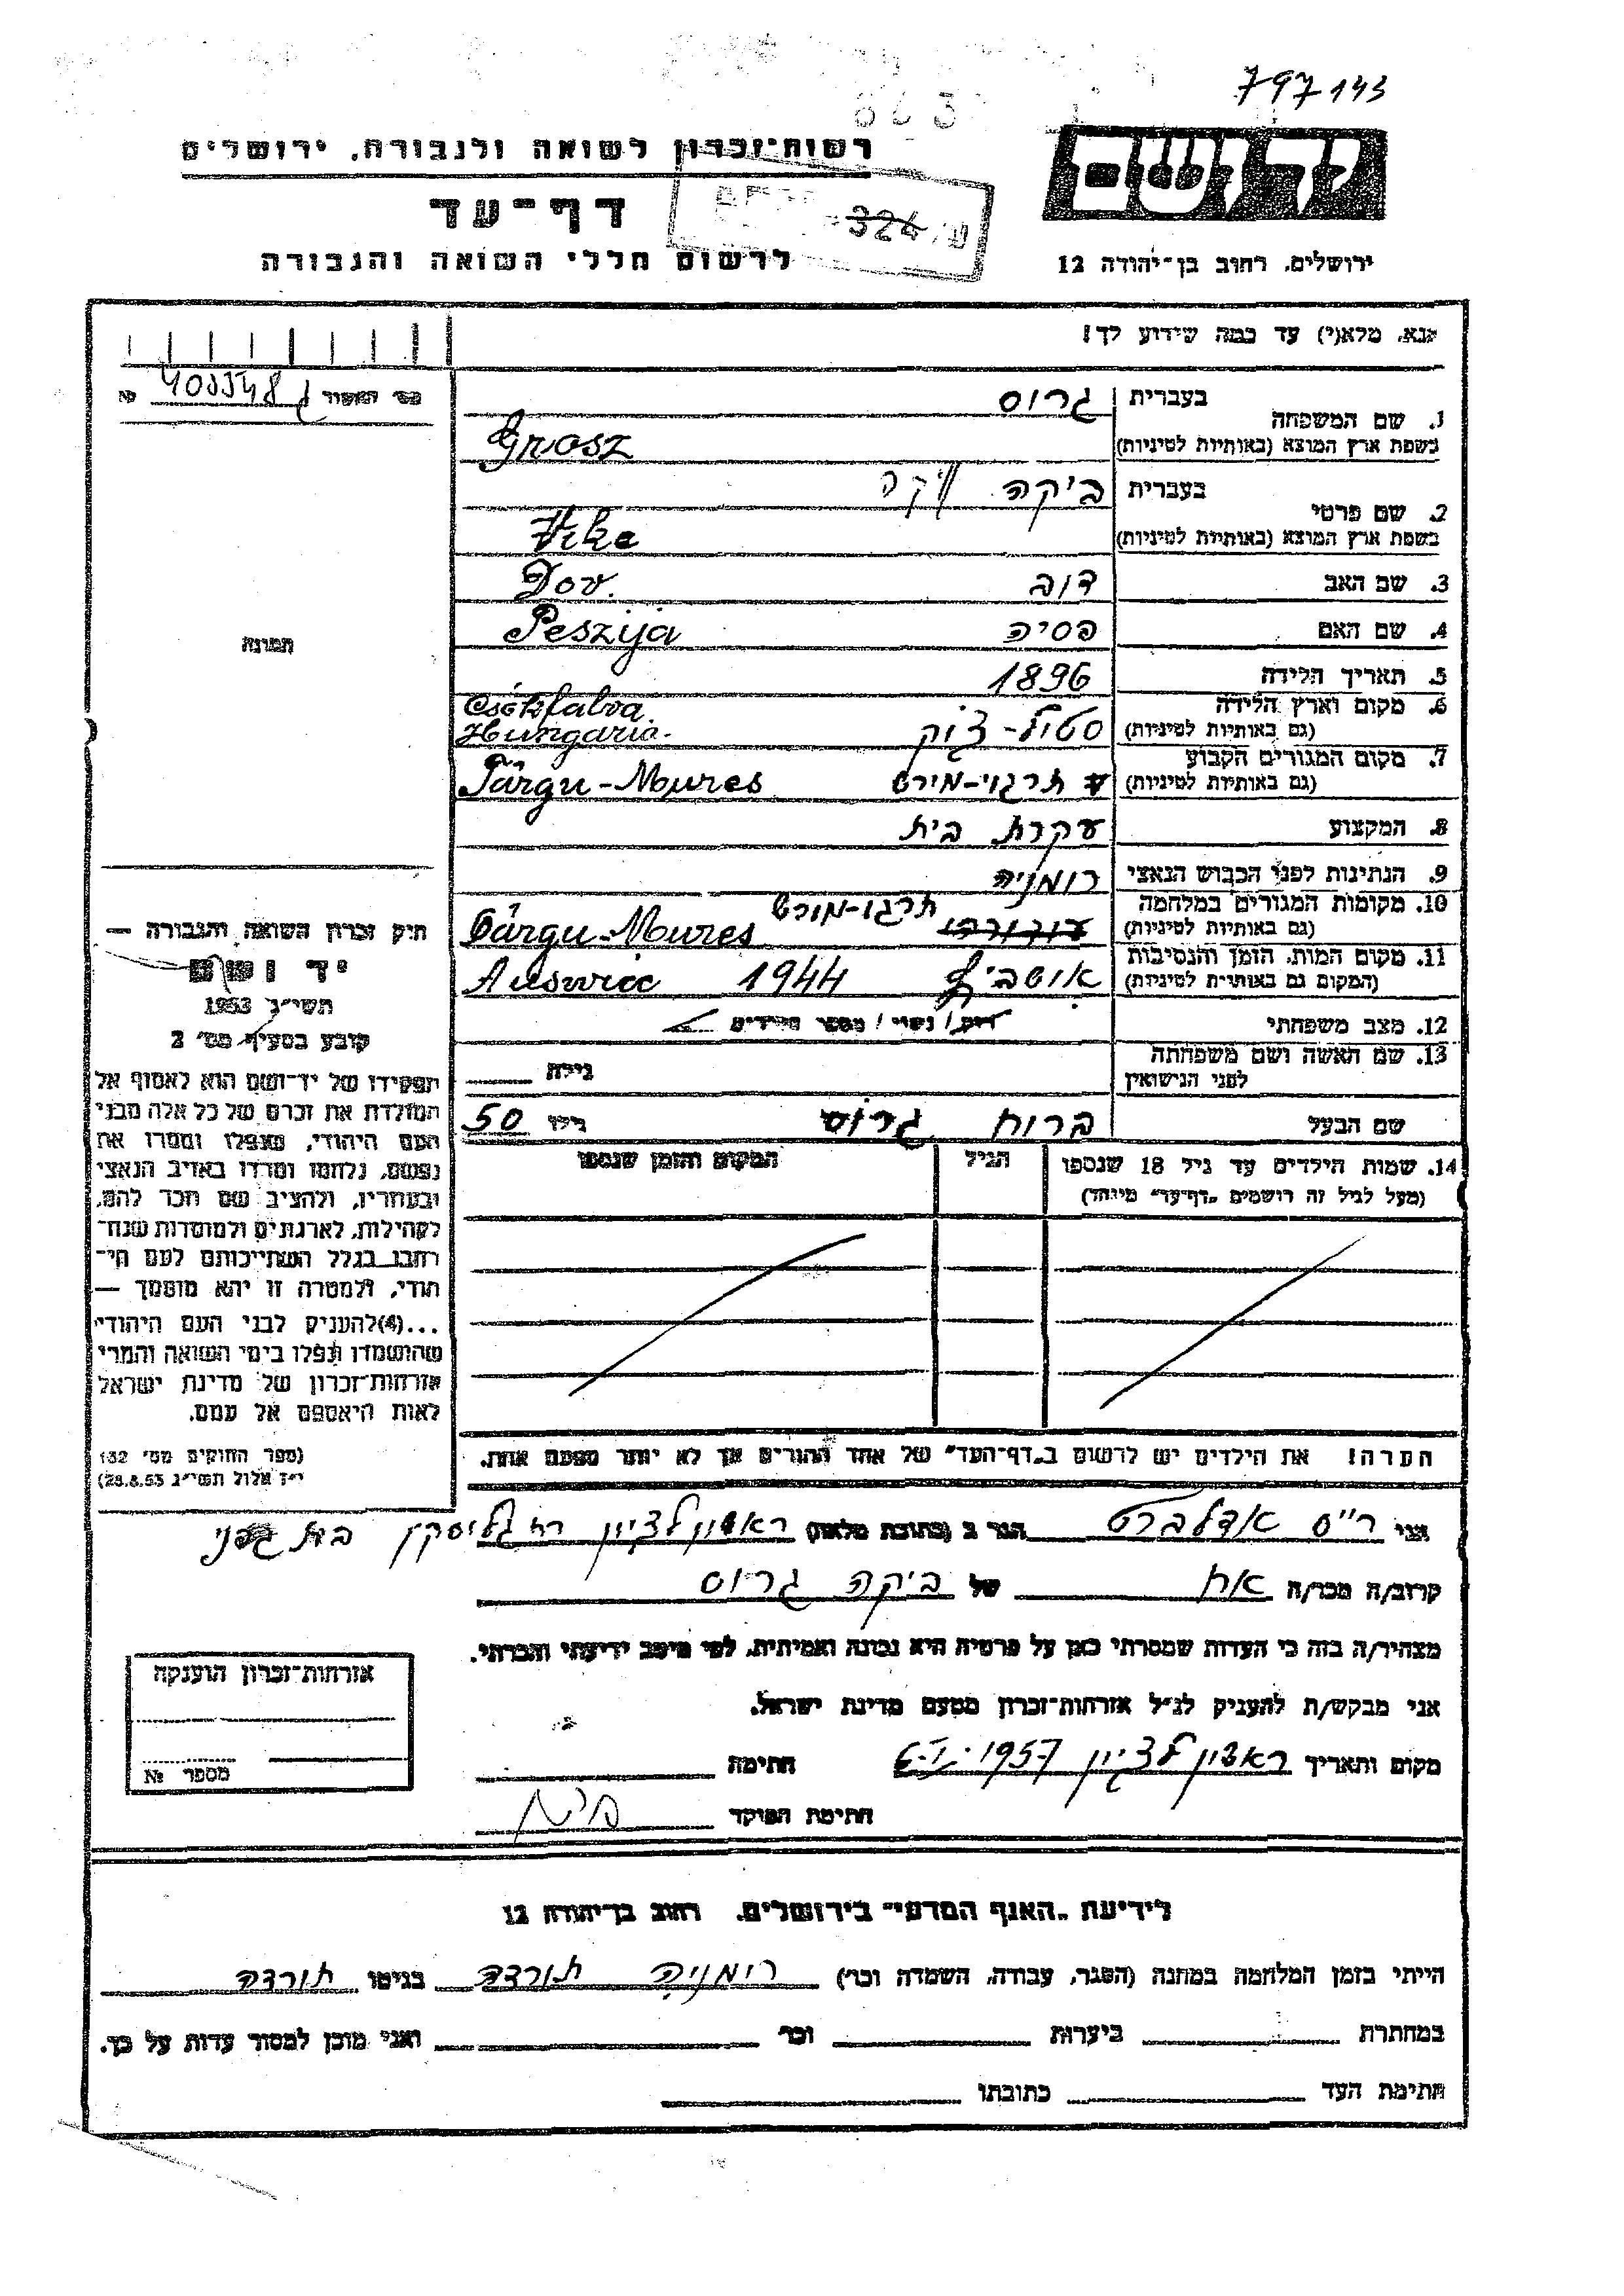 797143
רשות־זכרון לשואה ולגבורה, ירושלים
יד ושם
דף־עד
324
לרשום חללי השואה והגבורה
ירושלים, רחוב בן־יהודה 12
נא, מלא(י) עד כמה שידוע לך!
1. שם המשפחה
בעברית גרוס
בשפת ארץ המוצא (באותיות לטיניות) Grosz
2. שם פרטי
בעברית ביקה
בשפת ארץ המוצא (באותיות לטיניות)
3. שם האב דוב Dov.
4. שם האם פסיה Peszija
5. תאריך הלידה 1896
6. מקום וארץ הלידה
(גם באותיות לטיניות) Csókfalva. Hungaria.
7. מקום המגורים הקבוע
(גם באותיות לטיניות) תרגוי-מורש Târgu-Mures
8. המקצוע עקרת בית
9. הנתינות לפני הכבוש הנאצי רומניה
10. מקומות המגורים במלחמה
(גם באותיות לטיניות) תרגו-מורש Târgu-Mures
11. מקום המות, הזמן והנסיבות
(המקום גם באותיות לטיניות) אושביץ 1944 Auswic
12. מצב משפחתי רוק / נשוי / מספר הילדים
13. שם האשה ושם משפחתה
לפני הנישואין גילה
שם הבעל ברוח גרוס גילו 50
14. שמות הילדים עד גיל 18 שנספו
(מעל לגיל זה רושמים „דף־עד״ מיוחד)
הגיל
המקום והזמן שנספו
הערה! את הילדים יש לרשום ב„דף־העד״ של אחד ההורים אך לא יותר מפעם אחת.
№
תמונה
חיק זכרון השואה והגבורה —
יד ושם
תשי״ג 1953
קובע בסעיף מס׳ 2
תפקידו של יד־ושם הוא לאסוף אל
המולדת את זכרם של כל אלה מבני
העם היהודי, שנפלו ומסרו את
נפשם, נלחמו ומרדו באויב הנאצי
ובעוזריו, ולהציב שם וזכר להם,
לקהילות, לארגונים ולמוסדות שנח־
רבו בגלל השתייכותם לעם הי־
הודי, ולמטרה זו יהא מוסמך —
...(4)להעניק לבני העם היהודי
שהושמדו ונפלו בימי השואה והמרי
אזרחות־זכרון של מדינת ישראל
לאות היאספם אל עמם.
(ספר החוקים מס׳ 132
י״ז אלול תשי״ג 28.8.53)
אני רייס אדלברט הגר ב (כתובת מלאה) ראשון לציון
קרוב/ה מכר/ה אח של ביקה גרוס
מצהיר/ה בזה כי העדות שמסרתי כאן על פרטיה היא נכונה ואמיתית, לפי מיטב ידיעתי והכרתי.
אני מבקש/ת להעניק לנ״ל אזרחות־זכרון מטעם מדינת ישראל.
מקום ותאריך ראשון לציון 1957 חתימה
חתימת הפוקד
אזרחות־זכרון הוענקה
מספר №
לידיעת „האגף המדעי״ בירושלים, רחוב בן־יהודה 12
הייתי בזמן המלחמה במחנה (הסגר, עבודה, השמדה וכו׳) רומניה תורדה בגיטו תורדה
במחתרת ביערות וכו׳ ואני מוכן למסור עדות על כך.
חתימת העד כתובתו